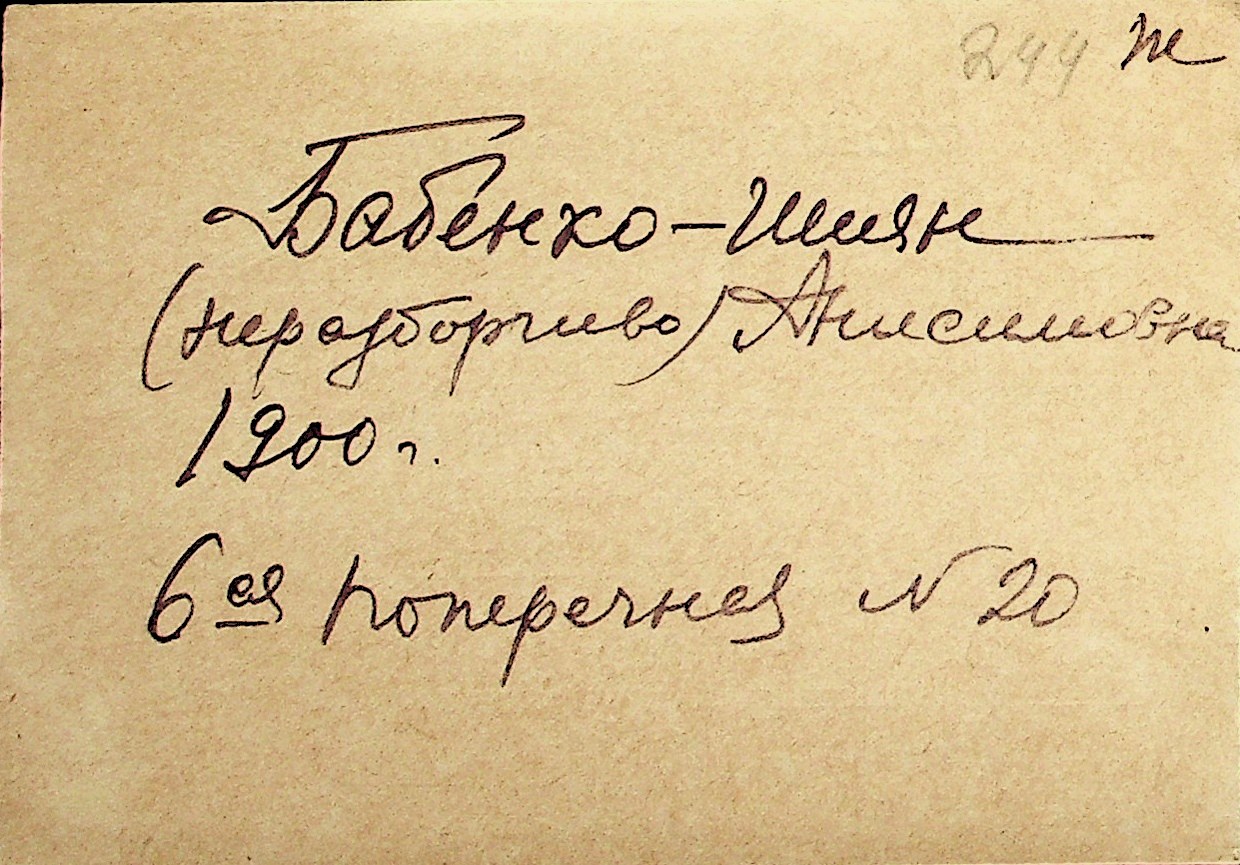 244 Ж
Бабенко-Шиян
(неразборчиво) Анисимовна
1900 г.
6ая поперечная N 20